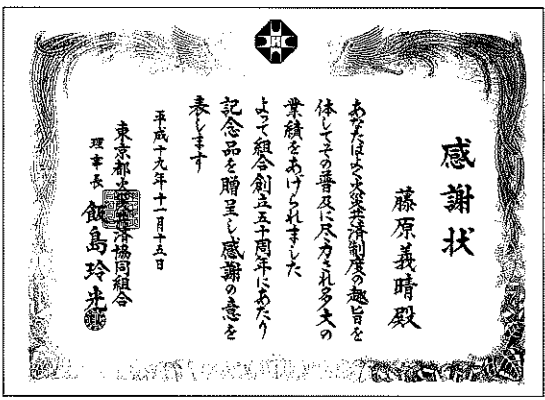 感謝状
藤原義晴殿
あなたはよく火災共済制度の趣旨を
体してその普及に尽力され多大の
業績をあげられました
よって組合創立五十周年にあたり
記念品を贈呈し感謝の意を
表します
平成十九年十一月十五日
東京都火災共済協同組合
理事長 飯島玲光